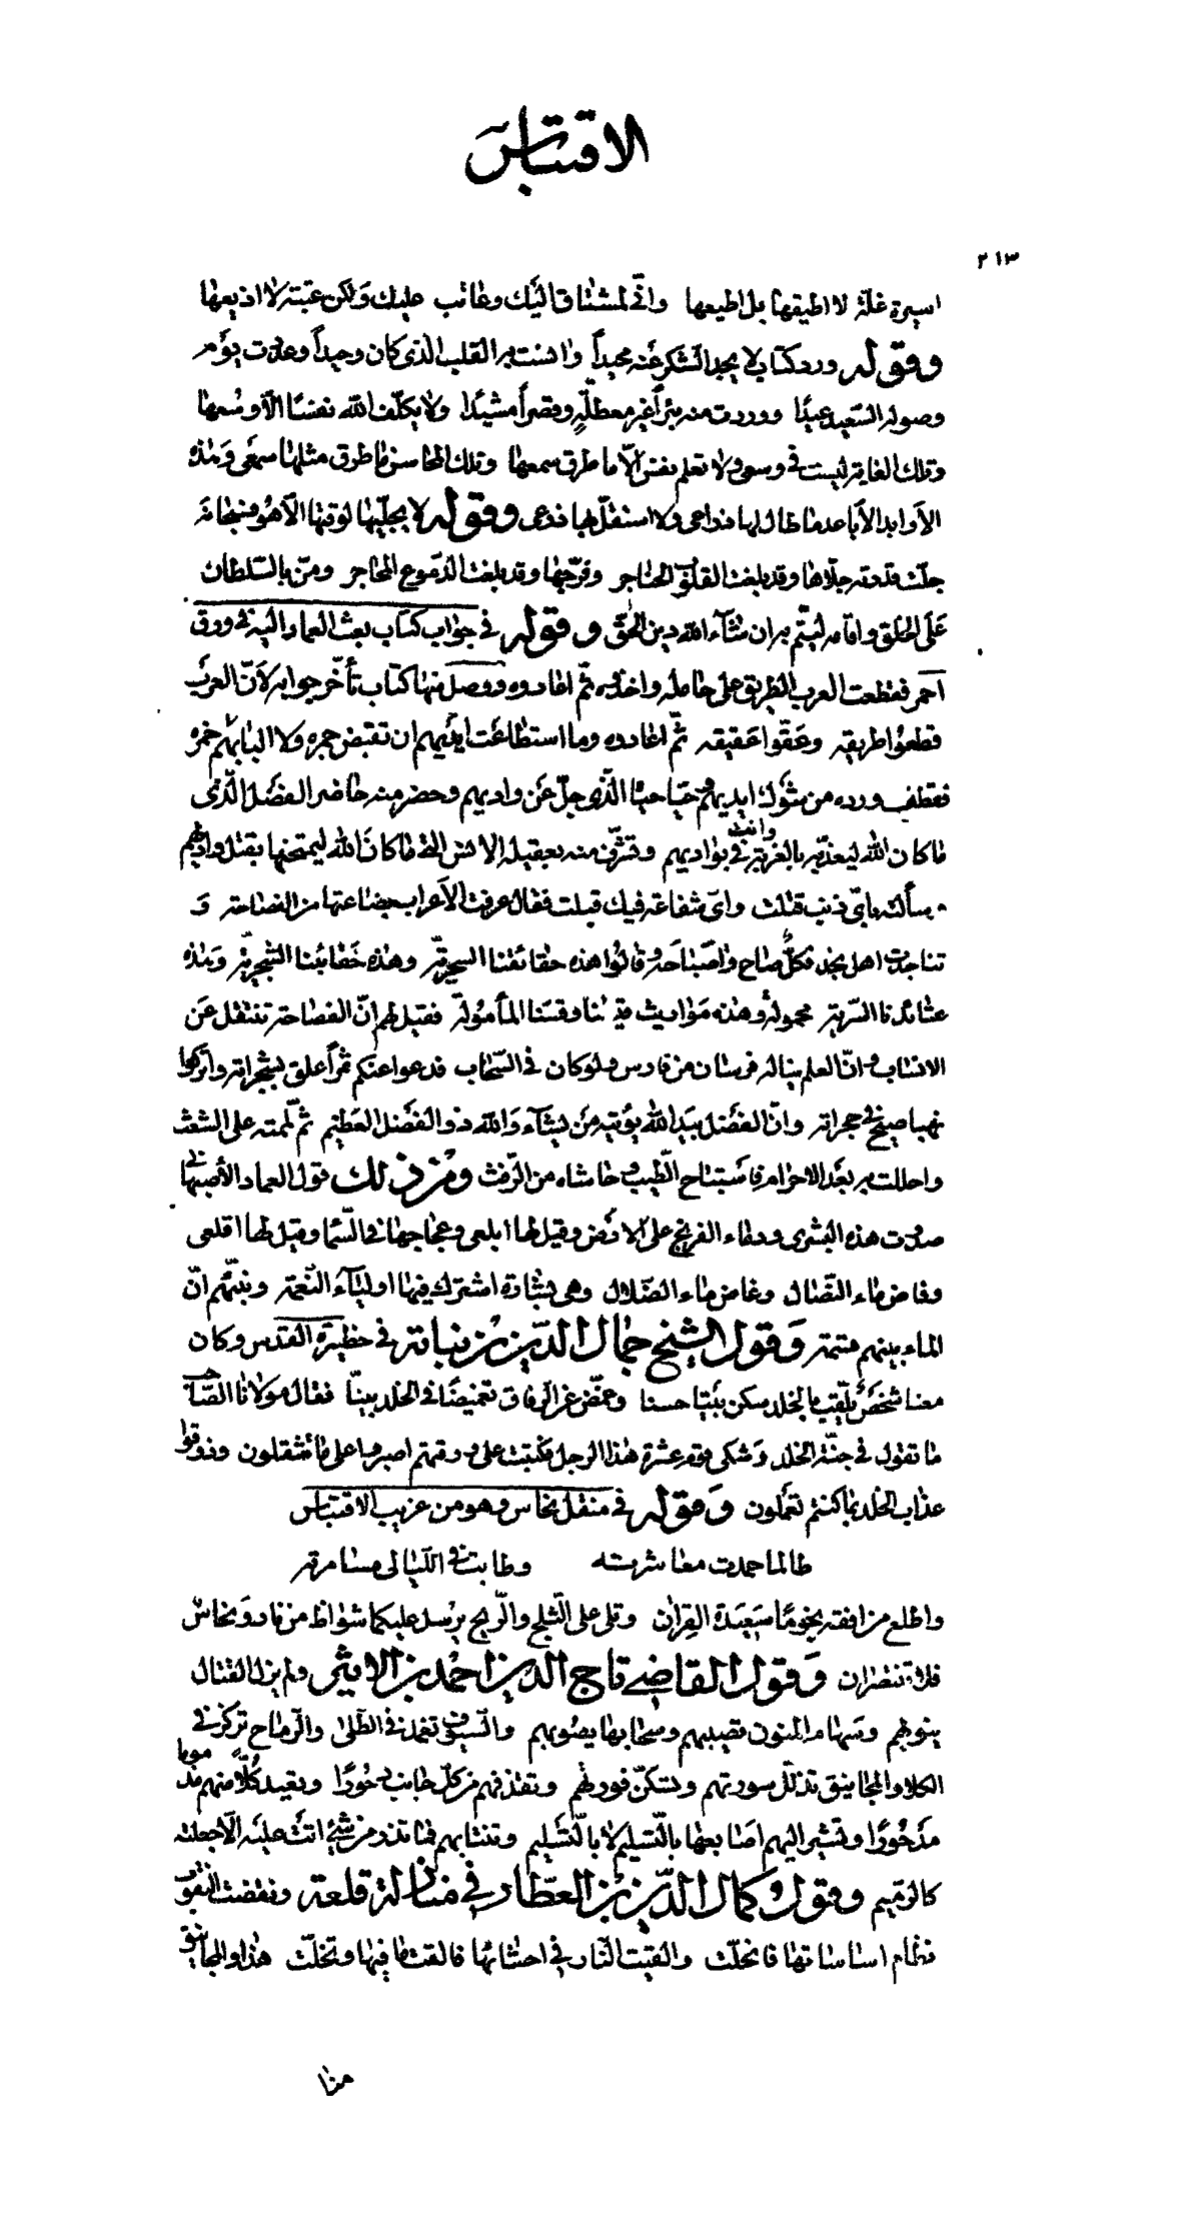 الاقتباس
٢١٣
اسيرة غلّة لا اطيقها بل اطيعها وانّى لمشتاق اليك وعاتب عليك ولكن عتبة لا اذيعها
وقوله ورد كتاب لا يجد الشكر عنه محيداً وانست به القلب الذى كان وحيداً وعادت يوم
وصوله السّعيد عيدًا ووردت منه بئراً غير معطّلةٍ وقصراً مشيدًا ولا يكلّف الله نفسًا الّا وسعها
وتلك الغاية ليست فى وسعى ولا تعلم نفس الّا ما طرق سمعها وتلك المحاسن ما طرق مثلها سمعى وهذه
الاوابد الاباعد ما طال لها ذراعى ولا استقلّ بها ذرعى وقوله لا يجلّيها لوقتها الّا هو فسبحان
جلّت قدرته جلاها وقد بلغت القلوب الحناجر وفرّجها وقد بلغت الدّموع المحاجر ومنّ بالسّلطان
على الخلق واقامه ليتمّ به ان شآء الله دين الحقّ وقوله فى جواب كتاب بعث العماد اليه فى ورق
احمر فقطعت العرب الطريق على حامله واخذوه ثمّ اعادوه ووصل منها كتاب تأخّر جوابه لانّ العرب
قطعوا طريقه وعقّوا عقيقه ثمّ اعادوه وما استطاعت ايديهم ان تقبض جمره ولا البابهم خمره
فقطف ورده من شوك ايديهم وحيا حياه الّذى جلّ عن واديهم وحضر منه حاضر الفضل الّذى
ما كان الله ليعذّبه بالغربة وانت فى بواديهم وتشرّف منه بعقيلة الانس التى ما كان الله ليمتحنها بقتل واديهم
يسألنه باىّ ذنب قتلت واىّ شفاعة فيك قبلت فقال عرفت الاعراب بضاعتها من الفصاحة و
تناجدت اهل نجد فكلّ صاح واصباحه وقالوا هذه حقائقنا السحريّة وهذه حقائبنا الشجريّة وهذه
عتائدنا السّريّة محمولة وهذه مواريث قيسنا وقسّنا المأمولة فقيل لهم انّ الفصاحة تنتقل عن
الانساب وانّ العلم يناله فرسان من فارس ولو كان فى السّحاب فدعوا عنكم ثمراً علق بشجراته واتركوا
نهبا صيح فى حجراته وانّ الفضل بيد الله يؤتيه من يشآء والله ذو الفضل العظيم ثم لممته على الشعث
واحللت به بعد الاحرام فاستباح الطّيب وحاشاه من الرّفث ومن ذلك قول العماد الأصبهانى
صدرت هذه البشرى ودماء الفرنج على الارض وقيل لها ابلعى وعجاجها فى السّما وقيل لها اقلعى
وفاض ماء النّصال وغاض ماء الضّلال وهى بشارة اشترك فيها اوليآء النّعمة ونبّئهم انّ
الماء بينهم قسمة وقول الشيخ جمال الدّين بن نباتة فى حظيرة القدس وكان
معنا شخص يلقّب بالخلد سكن بيتا حسنا وغمّض عن الرفاق تغميضًا فى الخلد بيّنا فقال مولانا الصّاحب
ما تقول فى جنّة الخلد وشكى بوم عشرة هذا الرجل فكتبت على ورقتهم اصبروا على ما تثقلون وذوقوا
عذاب الخلد بما كنتم تعملون وقوله فى منقل نحاس وهو من غريب الاقتباس
طالما حمدت معاشرته وطابت فى الليالى مسامرته
واطلع من افقه نجومًا سعيدة القران وتلى على الثّلج والرّيح يرسل عليكما شواظ من نار ونحاس
فلا تنتصران وقول القاضى تاج الدين احمد بن الاثير ولم يزل القتال
ينوبهم وسهام المنون تصيبهم وسحابها يصوبهم والسّيوف تغمد فى الطّلى والرّماح تركز فى
الكلا والمجانيق تذلّل سورتهم وتسكّن فورتهم وتقذفهم من كلّ جانب دحورًا وتعيد كلّا منهم مذموما
مدحورًا وتشير اليهم اصابعها بالتّسليم لا بالتّسليم وتنتابهم فما تذر من شئ اتت عليه الّا جعلته
كالرّميم وقول كمال الدّين بن العطّار فى منازلة قلعة ونقضت النقوب
نظام اساساتها فانحلّت والقيت النّار فى احشائها فالقت ما فيها وتخلّت هذا والمجانيق
هذا